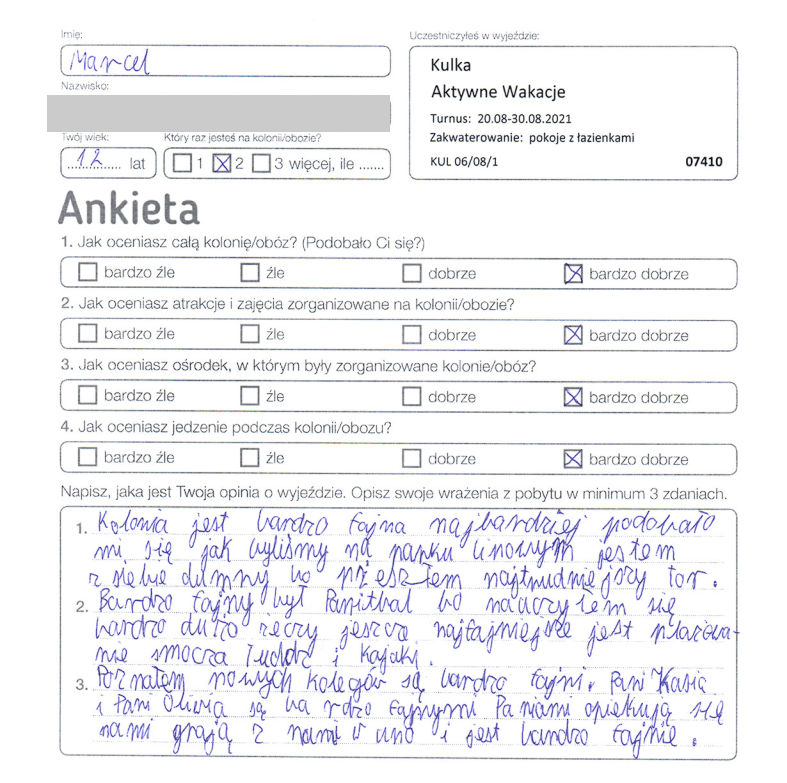 Imię:
Marcel
Nazwisko:
Twój wiek:
12 lat
Który raz jesteś na kolonii/obozie?
1 2 3 więcej, ile .......
Uczestniczyłeś w wyjeździe:
Kulka
Aktywne Wakacje
Turnus: 20.08-30.08.2021
Zakwaterowanie: pokoje z łazienkami
KUL 06/08/1 07410
Ankieta
1. Jak oceniasz całą kolonię/obóz? (Podobało Ci się?)
bardzo źle źle dobrze bardzo dobrze
2. Jak oceniasz atrakcje i zajęcia zorganizowane na kolonii/obozie?
bardzo źle źle dobrze bardzo dobrze
3. Jak oceniasz ośrodek, w którym były zorganizowane kolonie/obóz?
bardzo źle źle dobrze bardzo dobrze
4. Jak oceniasz jedzenie podczas kolonii/obozu?
bardzo źle źle dobrze bardzo dobrze
Napisz, jaka jest Twoja opinia o wyjeździe. Opisz swoje wrażenia z pobytu w minimum 3 zdaniach.
1. Kolonia jest bardzo fajna najbardziej podobało
mi się jak byliśmy na parku linowym jestem
z siebie dumny bo przeszłem najtrudniejszy tor.
2. Bardzo fajny był bo nauczyłem się
bardzo dużo rzeczy jeszcze najfajniejsze jest pława-
nie smocza łuddź i kajaki.
3. Poznałem nowych kolegów są bardzo fajni. Pani Kasia
i Pani Oliwia są ba rdzo fajnymi Paniami opiekują się
nami grają z nami w uno i jest bardzo fajnie.